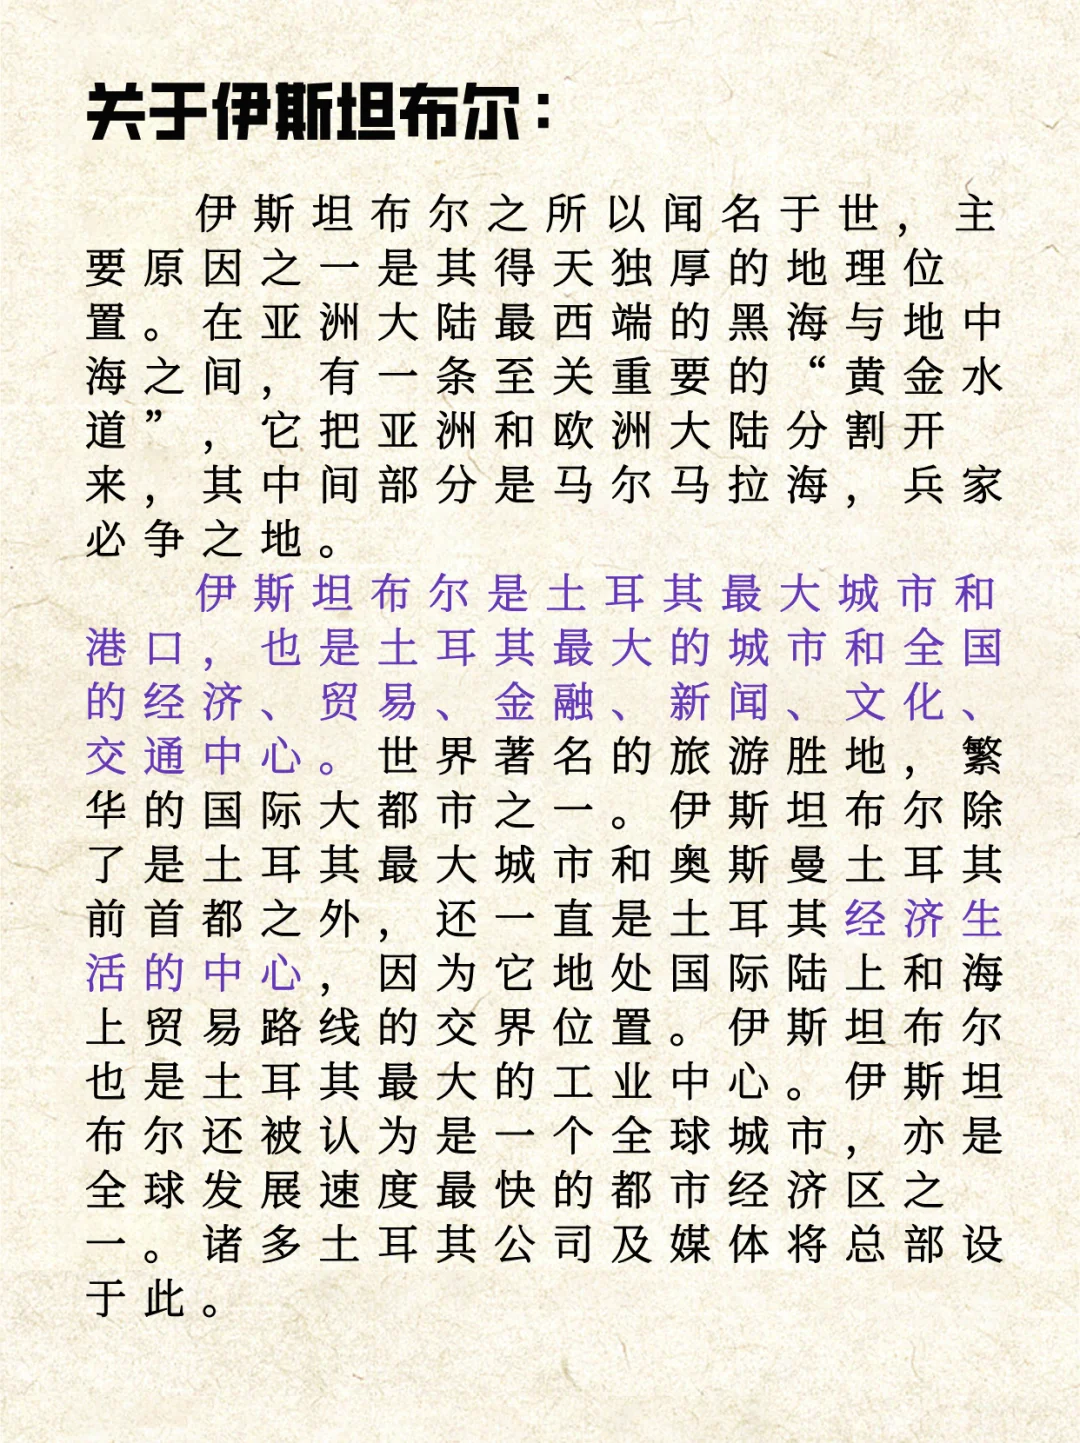 关于伊斯坦布尔：
伊斯坦布尔之所以闻名于世，主
要原因之一是其得天独厚的地理位
置。在亚洲大陆最西端的黑海与地中
海之间，有一条至关重要的“黄金水
道”，它把亚洲和欧洲大陆分割开
来，其中间部分是马尔马拉海，兵家
必争之地。
伊斯坦布尔是土耳其最大城市和
港口，也是土耳其最大的城市和全国
的经济、贸易、金融、新闻、文化、
交通中心。世界著名的旅游胜地，繁
华的国际大都市之一。伊斯坦布尔除
了是土耳其最大城市和奥斯曼土耳其
前首都之外，还一直是土耳其经济生
活的中心，因为它地处国际陆上和海
上贸易路线的交界位置。伊斯坦布尔
也是土耳其最大的工业中心。伊斯坦
布尔还被认为是一个全球城市，亦是
全球发展速度最快的都市经济区之
一。诸多土耳其公司及媒体将总部设
于此。